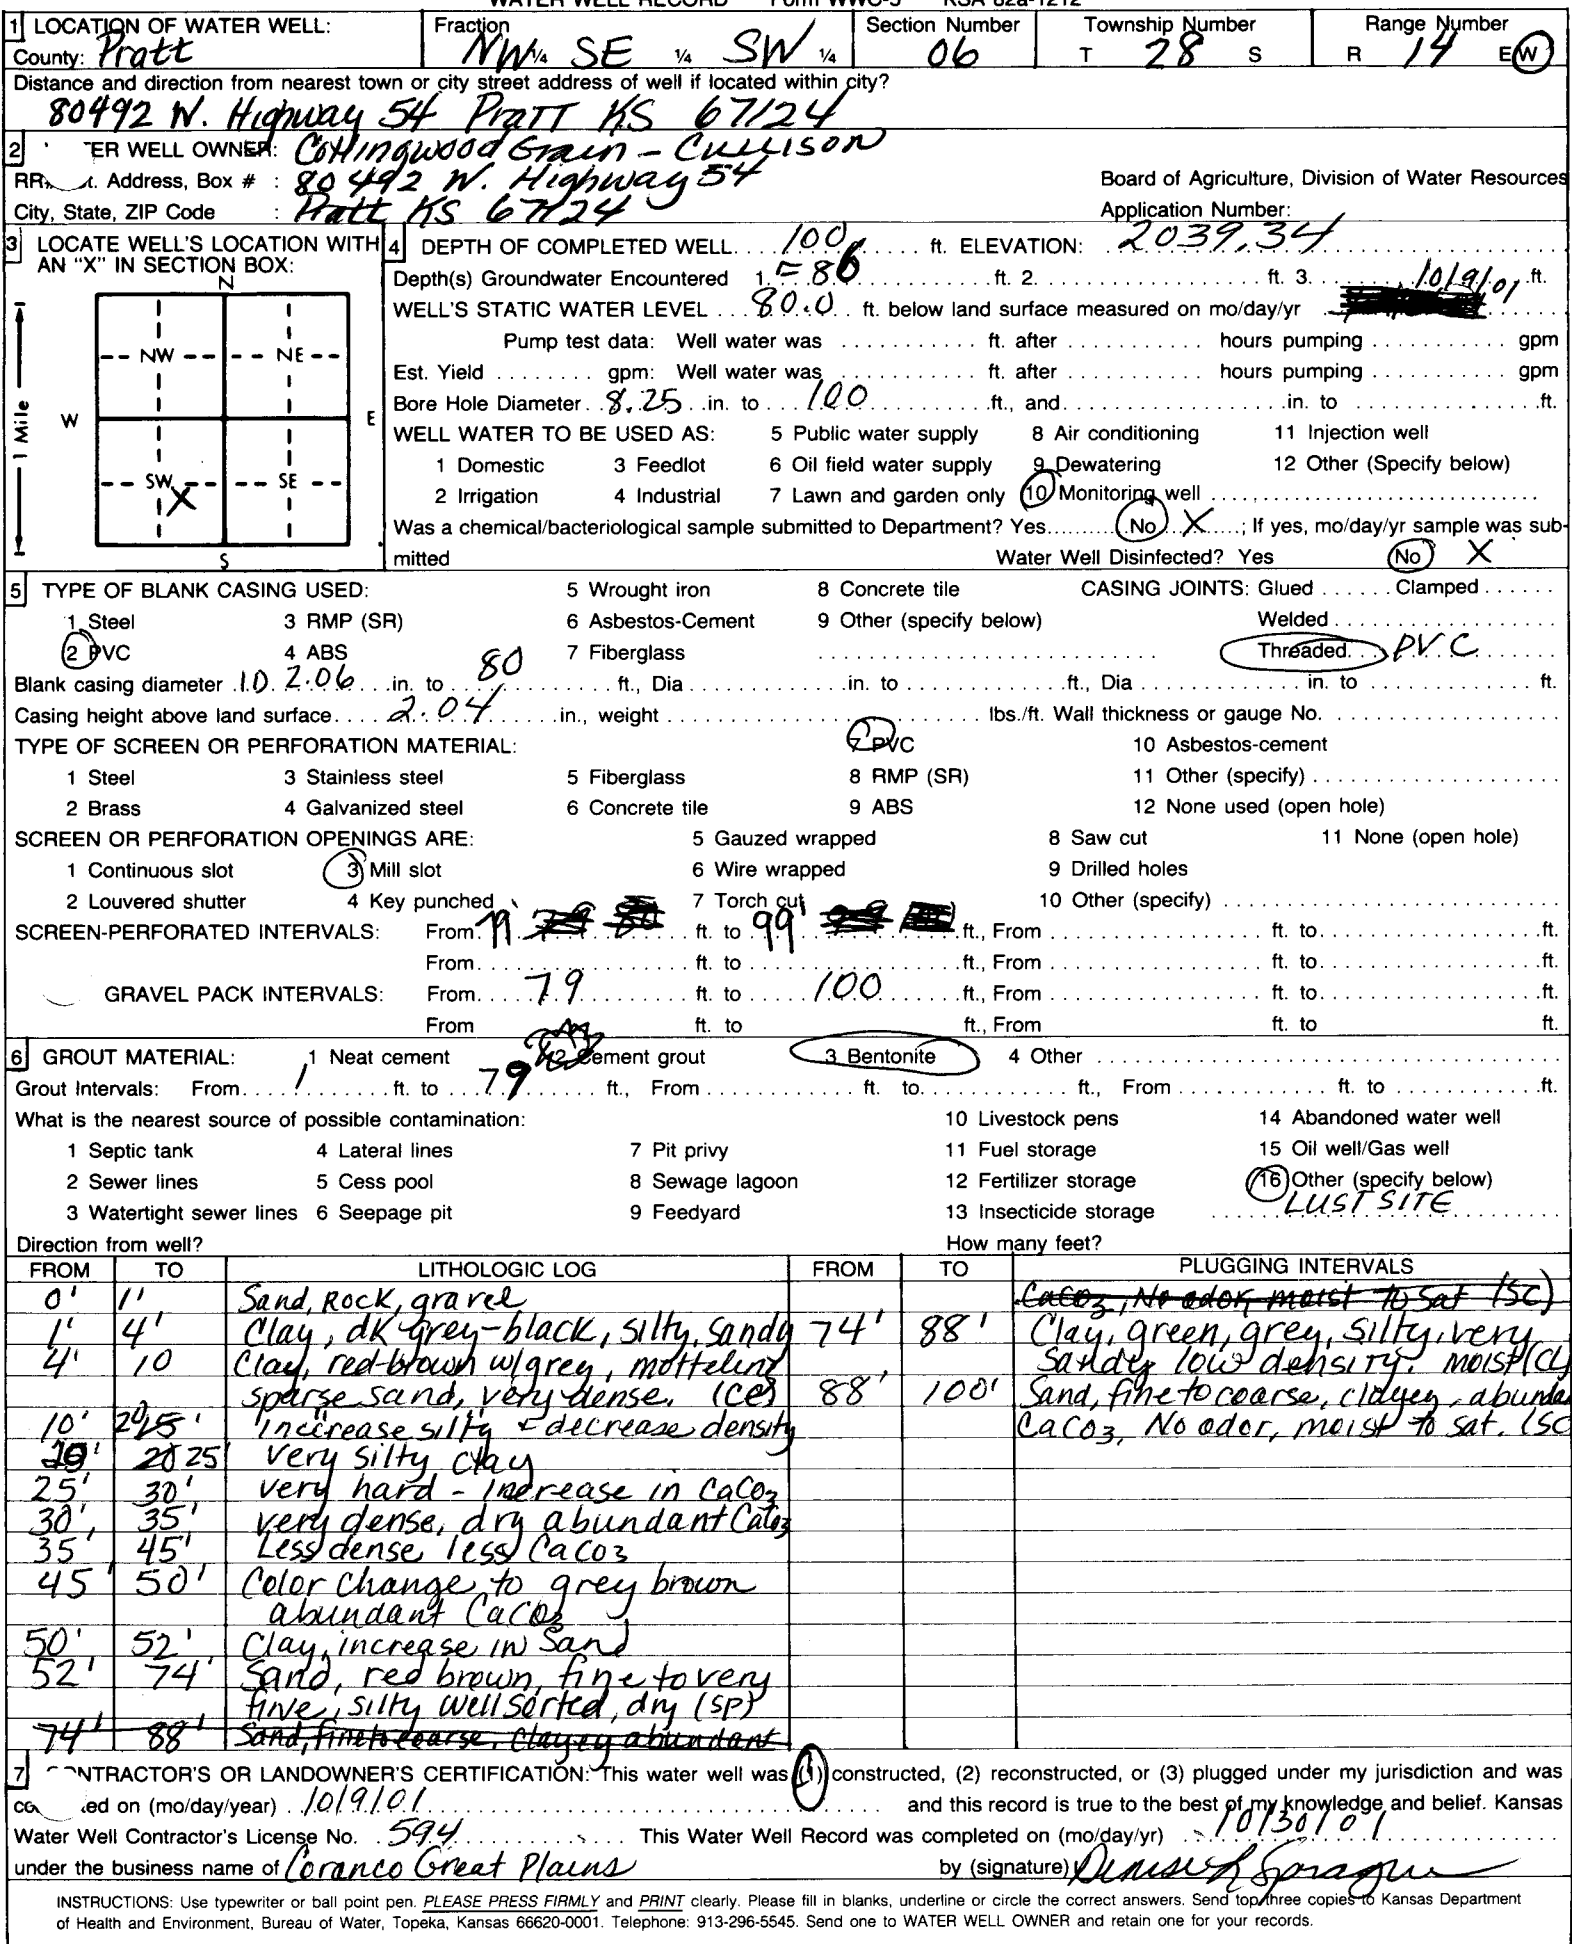 WATER WELL RECORD Form WWC-5 KSA 82a-1212
1 LOCATION OF WATER WELL: Fraction Section Number Township Number Range Number
County: Pratt NW ¼ SE ¼ SW ¼ 06 T 28 S R 14 E W
Distance and direction from nearest town or city street address of well if located within city?
80492 W. Highway 54 Pratt KS 67124
2 ER WELL OWNER: Collingwood Grain - Cullison
RR, t. Address, Box # : 80492 W. Highway 54 Board of Agriculture, Division of Water Resources
City, State, ZIP Code : Pratt KS 67124 Application Number:
3 LOCATE WELL'S LOCATION WITH AN "X" IN SECTION BOX:
N
NW NE
W E
SW X SE
S
1 Mile
4 DEPTH OF COMPLETED WELL 100 ft. ELEVATION: 2039.34
Depth(s) Groundwater Encountered 1. = 86 ft. 2. ft. 3. ft.
WELL'S STATIC WATER LEVEL 80.0 ft. below land surface measured on mo/day/yr 10/9/01
Pump test data: Well water was ft. after hours pumping gpm
Est. Yield gpm: Well water was ft. after hours pumping gpm
Bore Hole Diameter 8.25 in. to 100 ft., and in. to ft.
WELL WATER TO BE USED AS: 5 Public water supply 8 Air conditioning 11 Injection well
1 Domestic 3 Feedlot 6 Oil field water supply 9 Dewatering 12 Other (Specify below)
2 Irrigation 4 Industrial 7 Lawn and garden only 10 Monitoring well
Was a chemical/bacteriological sample submitted to Department? Yes No X ; If yes, mo/day/yr sample was sub-
mitted Water Well Disinfected? Yes No X
5 TYPE OF BLANK CASING USED: 5 Wrought iron 8 Concrete tile CASING JOINTS: Glued Clamped
1 Steel 3 RMP (SR) 6 Asbestos-Cement 9 Other (specify below) Welded
2 PVC 4 ABS 7 Fiberglass Threaded PVC
Blank casing diameter ID 2.06 in. to 80 ft., Dia in. to ft., Dia in. to ft.
Casing height above land surface 2.04 in., weight lbs./ft. Wall thickness or gauge No.
TYPE OF SCREEN OR PERFORATION MATERIAL: 7 PVC 10 Asbestos-cement
1 Steel 3 Stainless steel 5 Fiberglass 8 RMP (SR) 11 Other (specify)
2 Brass 4 Galvanized steel 6 Concrete tile 9 ABS 12 None used (open hole)
SCREEN OR PERFORATION OPENINGS ARE: 5 Gauzed wrapped 8 Saw cut 11 None (open hole)
1 Continuous slot 3 Mill slot 6 Wire wrapped 9 Drilled holes
2 Louvered shutter 4 Key punched 7 Torch cut 10 Other (specify)
SCREEN-PERFORATED INTERVALS: From ft. to 99' ft., From ft. to ft.
From ft. to ft., From ft. to ft.
GRAVEL PACK INTERVALS: From 79 ft. to 100 ft., From ft. to ft.
From ft. to ft., From ft. to ft.
6 GROUT MATERIAL: 1 Neat cement 2 Cement grout 3 Bentonite 4 Other
Grout Intervals: From 1 ft. to 79 ft., From ft. to ft., From ft. to ft.
What is the nearest source of possible contamination: 10 Livestock pens 14 Abandoned water well
1 Septic tank 4 Lateral lines 7 Pit privy 11 Fuel storage 15 Oil well/Gas well
2 Sewer lines 5 Cess pool 8 Sewage lagoon 12 Fertilizer storage 16 Other (specify below)
3 Watertight sewer lines 6 Seepage pit 9 Feedyard 13 Insecticide storage LUST SITE
Direction from well? How many feet?
FROM TO LITHOLOGIC LOG FROM TO PLUGGING INTERVALS
0' 1' Sand, Rock, gravel CaCO3, No odor, moist to sat (SC)
1' 4' Clay, dk grey-black, silty, sandy 74' 88' Clay, green, grey, silty, very
4' 10 Clay, red-brown w/grey, motteling sandy low density. moist (CL)
sparse sand, very dense. (CE) 88' 100' Sand, fine to coarse, clayey, abundan
10' 20' increase silty + decrease density CaCO3, No odor, moist to sat. (SC
20' 25' very silty clay
25' 30' very hard - increase in CaCO3
30' 35' very dense, dry abundant CaCO3
35' 45' Less dense less CaCO3
45 50' Color change to grey brown
abundant CaCO3
50' 52' Clay, increase in Sand
52' 74' Sand, red brown, fine to very
fine, silty well sorted, dry (SP)
74' 88' Sand, fine to coarse, clayey abundant
7 ONTRACTOR'S OR LANDOWNER'S CERTIFICATION: This water well was (1) constructed, (2) reconstructed, or (3) plugged under my jurisdiction and was
co ed on (mo/day/year) 10/9/01 and this record is true to the best of my knowledge and belief. Kansas
Water Well Contractor's License No. 594 This Water Well Record was completed on (mo/day/yr) 10/30/01
under the business name of Coranco Great Plains by (signature) Denise L Sprague
INSTRUCTIONS: Use typewriter or ball point pen. PLEASE PRESS FIRMLY and PRINT clearly. Please fill in blanks, underline or circle the correct answers. Send top three copies to Kansas Department
of Health and Environment, Bureau of Water, Topeka, Kansas 66620-0001. Telephone: 913-296-5545. Send one to WATER WELL OWNER and retain one for your records.